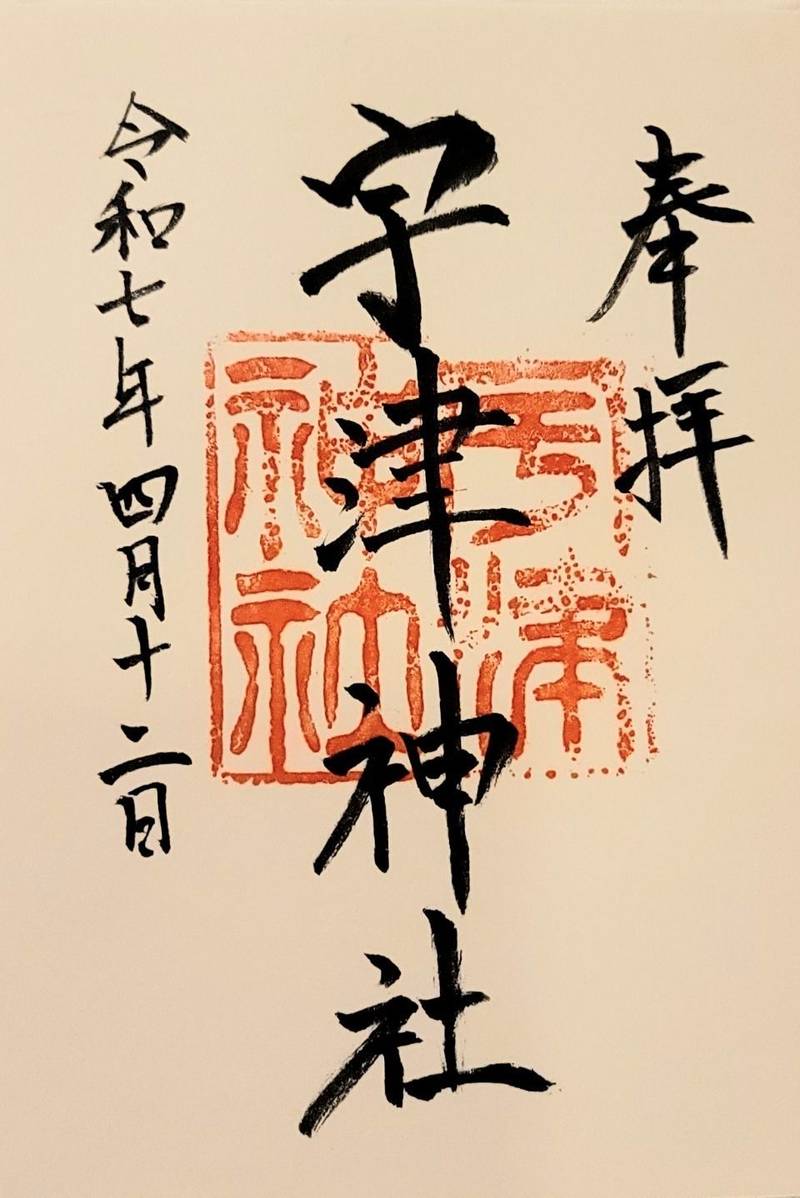 奉拝
宇津神社
令和七年四月十二日
宇津
神社